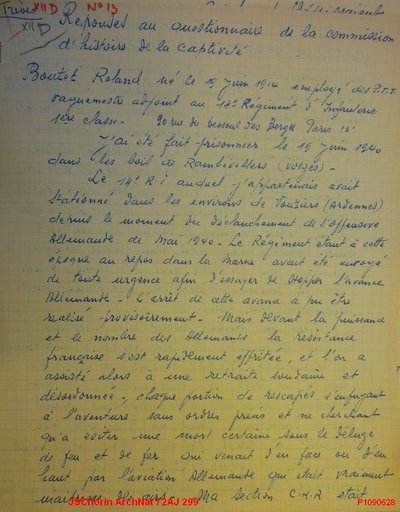 Treves XII D N° 13
XII D
Réponses au questionnaire de la commission
d'histoire de la captivité
Boutet Roland né le 19 Juin 1914 employé des P.T.T
vaguemestre adjoint au 14e Régiment d'Infanterie
1ère classe - rue de Paris 15e
J'ai été fait prisonnier le 19 Juin 1940
dans les bois de Rambervillers (Vosges) -
Le 14e R.I auquel j'appartenais avait
stationné dans les environs de Vouziers (Ardennes)
depuis le moment du déclanchement de l'Offensive
Allemande de Mai 1940 - Le Régiment étant à cette
époque au repos dans la Marne avait été envoyé
de toute urgence afin d'essayer de stopper l'avance
Allemande - L'arrêt de cette avance a pu être
réalisé provisoirement - Mais devant la puissance
et le nombre des Allemands la résistance
française s'est rapidement effritée, et l'on a
assisté alors à une retraite soudaine et
désordonnée, chaque portion de rescapés s'enfuyant
à l'aventure sans ordres précis et ne cherchant
qu'à éviter une mort certaine sous le déluge
de feu et de fer qui venait d'en face ou d'en
haut par l'aviation Allemande qui était vraiment
maitresse des airs - Ma Section C.H.R était
JSChorin ArchNat 72AJ 299
P1090628